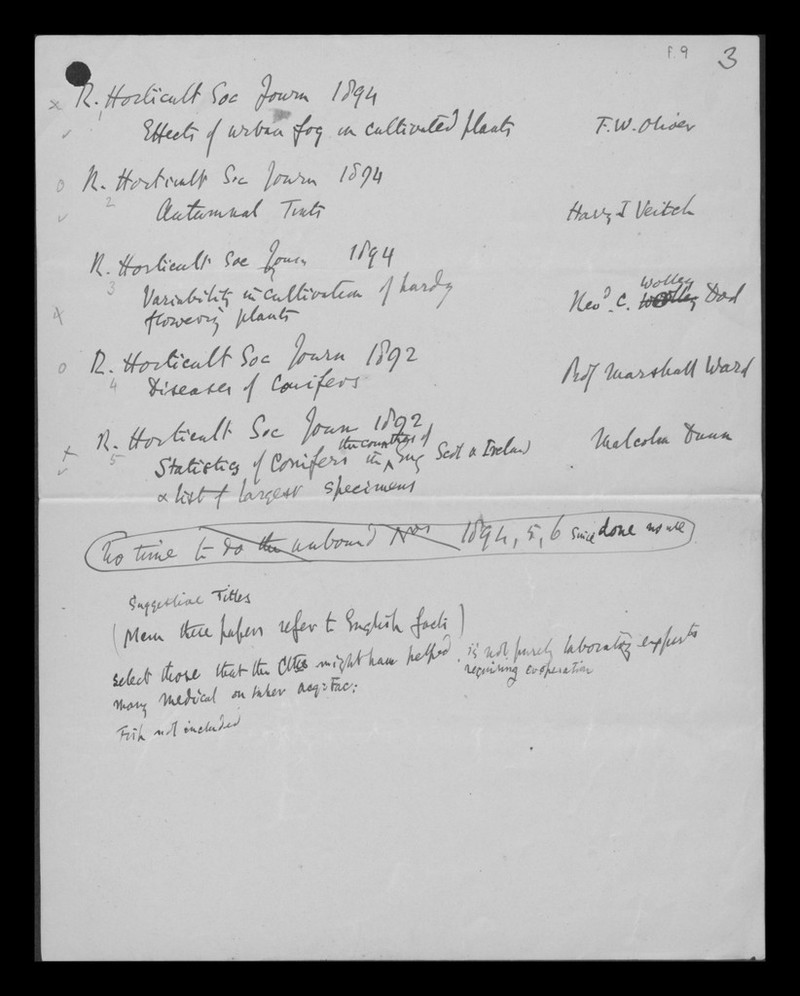 F. 9 3
x R. Horticult Soc Journ 1894
1
✓ Effects of urban fog on cultivated plants F. W. Oliver
o R. Horticult Soc Journ 1894
2
✓ Autumnal Tints Harry J Veitch
R. Horticult Soc Journ 1894
3
Variability in cultivation of hardy Revd. C. Wolley Dod
x flowering plants
o R. Horticult Soc Journ 1892
4
Diseases of Conifers Prof Marshall Ward
x R. Horticult Soc Journ 1892
5
✓ Statistics of Conifers in the counties of Eng Scot & Ireland Malcolm Dunn
& list of largest specimens
No time to do the unbound Nos 1894, 5, 6 since done no use
Suggestive Titles
(Mem these papers refer to English facts)
select those that the Cttee might have helped. is not purely laboratory expts
requiring cooperation
many medical on
Fish not included